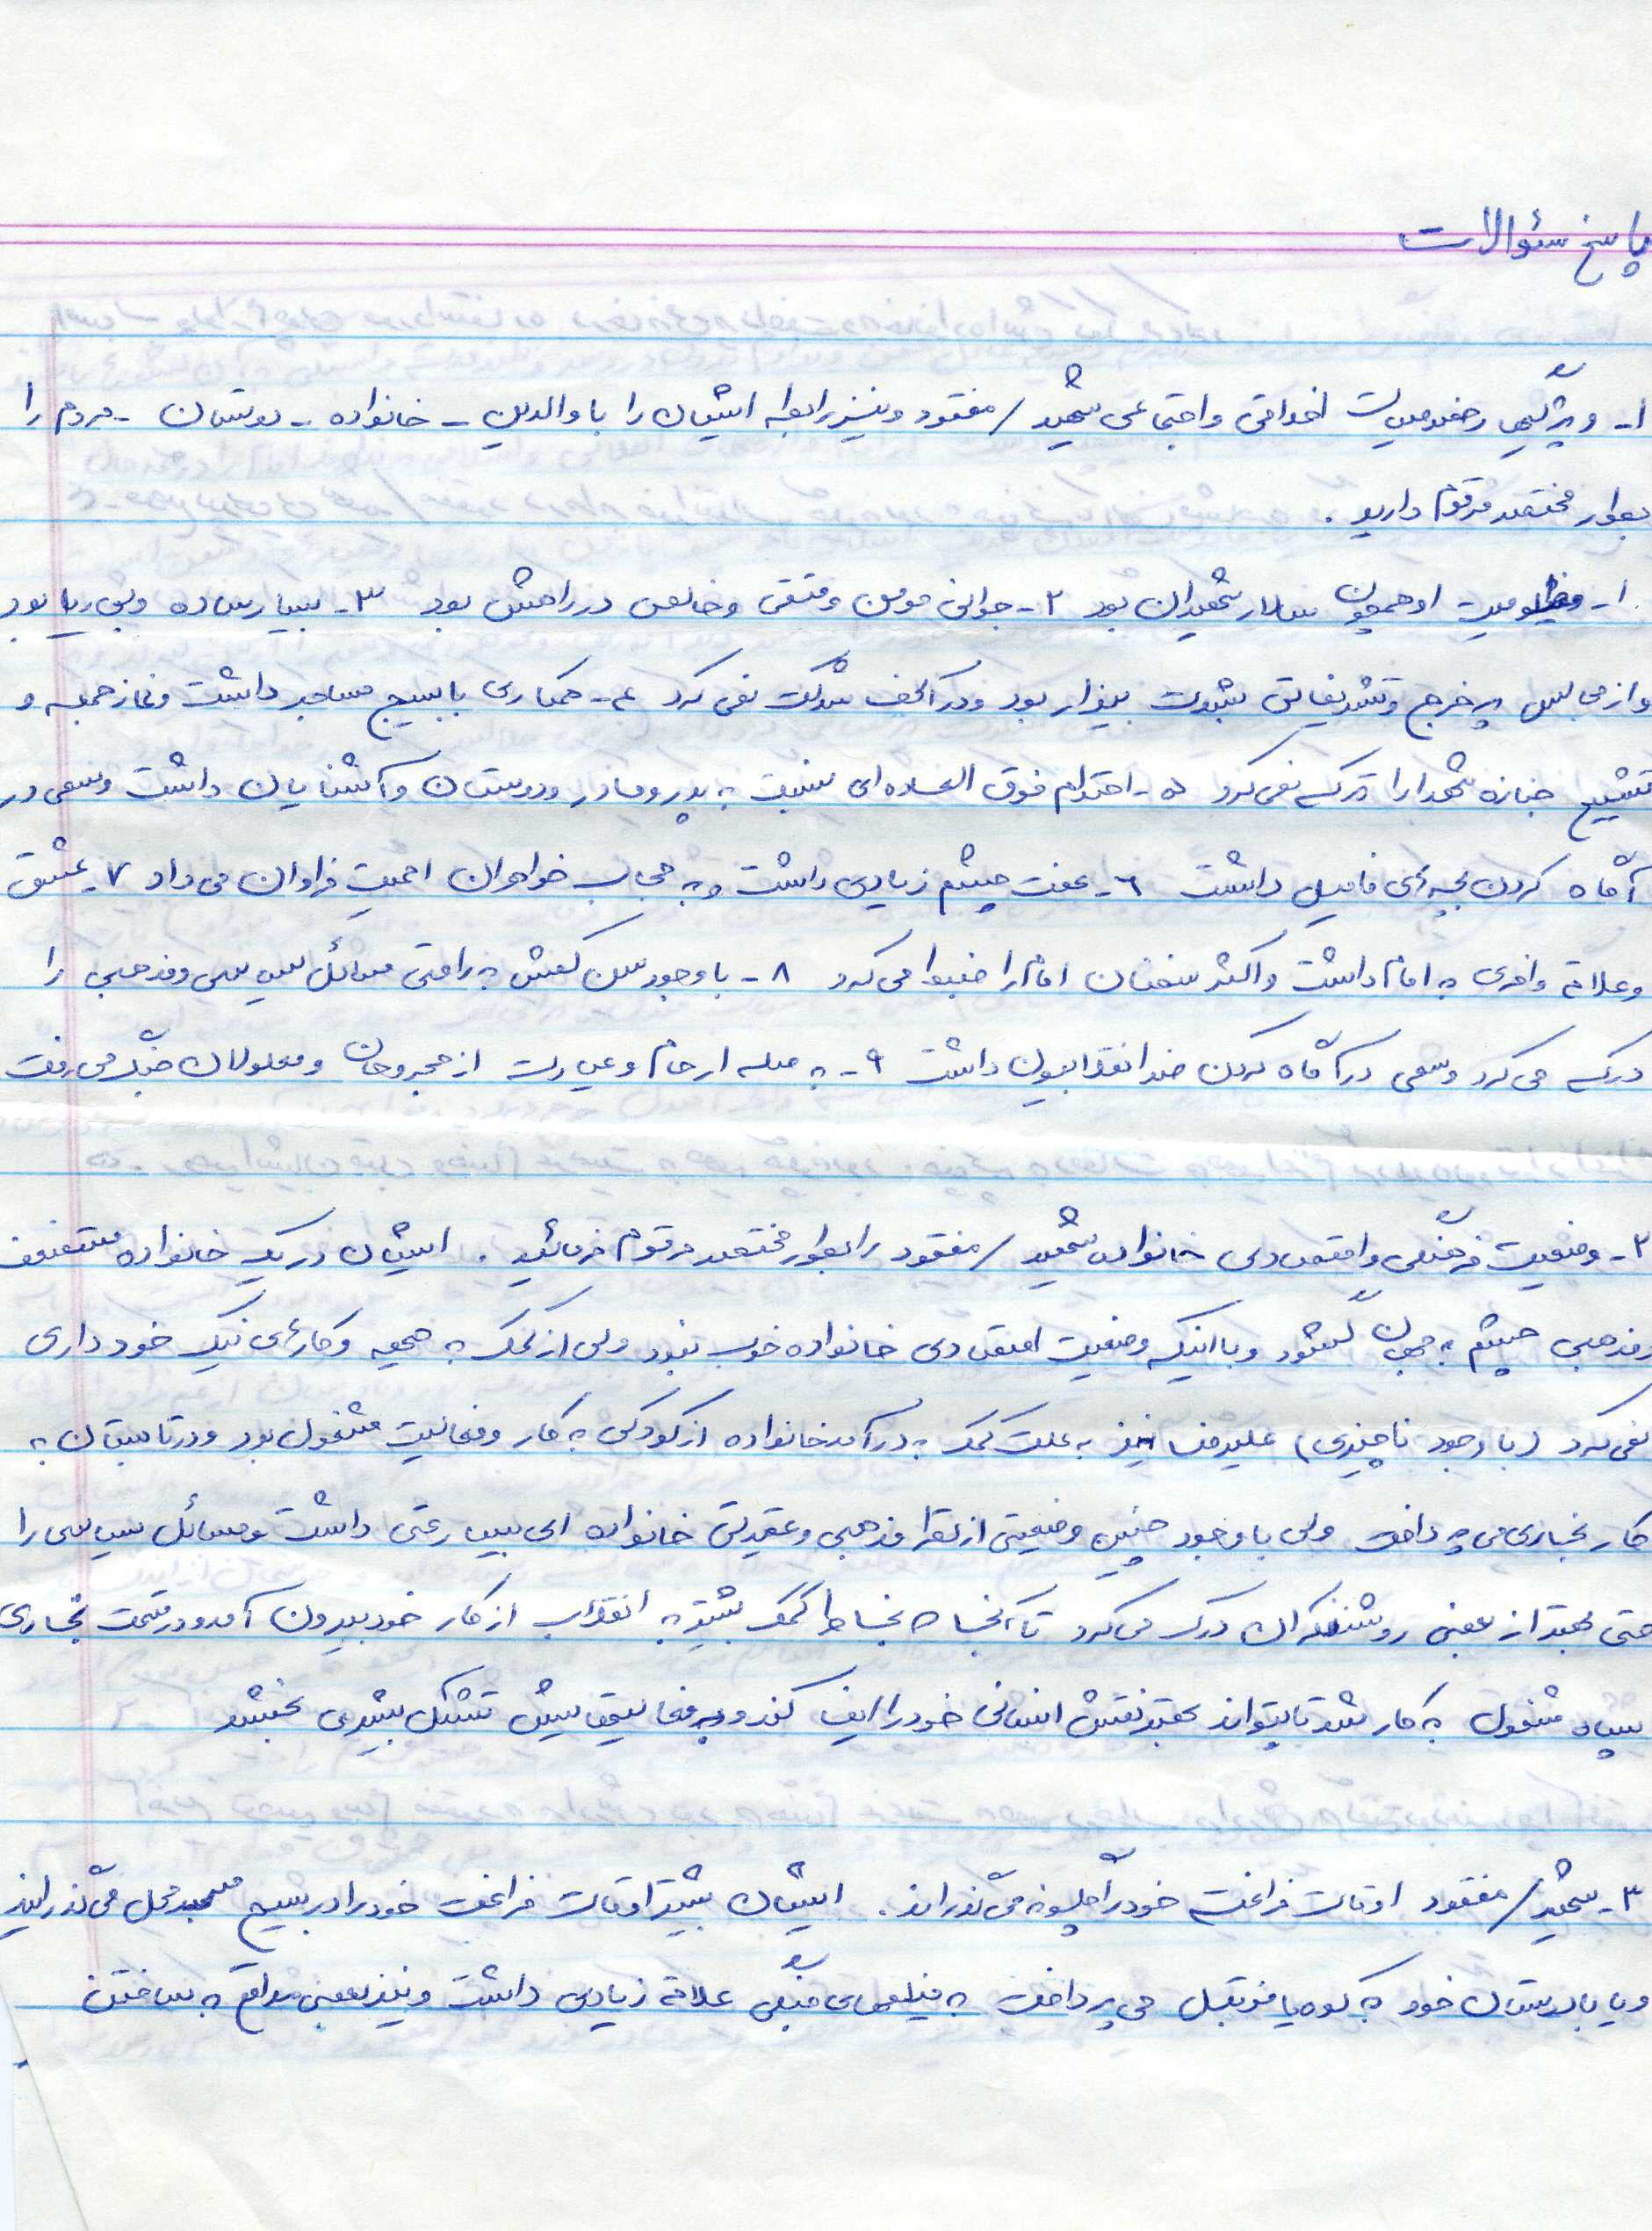 پاسخ سئوالات
۱- ویژگیها و خصوصیات اخلاقی و اجتماعی شهید / مفقود و نیز رابطه ایشان را با والدین - خانواده - دوستان - مردم را
بطور مختصر مرقوم دارید .
۱- مظلومیت او همچون سالار شهیدان بود ۲- جوانی مومن و متقی و خالص در راهش بود ۳- بسیار ساده و بی ریا بود
و از مجالس پر خرج و تشریفاتی بشدت بیزار بود و در آنها شرکت نمی کرد ۴- همکاری با بسیج مساجد داشت و نماز جمعه و
تشییع جنازه شهدا را ترک نمی کرد ۵- احترام فوق العاده ای نسبت به پدر و مادر و دوستان و آشنایان داشت و سعی در
آگاه کردن بچه های فامیل داشت ۶- عفت چشم زیادی داشت و به حجاب خواهران اهمیت فراوان می داد ۷- عشق
و علاقه وافری به امام داشت و اکثر سخنان امام را ضبط می کرد ۸- با وجود سن کمش به راحتی مسائل سیاسی و مذهبی را
درک می کرد و سعی در آگاه کردن ضد انقلابیون داشت ۹- به صله ارحام و عیادت از مجروحان و معلولان جنگ می رفت
۲- وضعیت فرهنگی و اقتصادی خانواده شهید / مفقود را بطور مختصر مرقوم فرمائید . ایشان در یک خانواده مستضعف
و مذهبی چشم به جهان گشود و با اینکه وضعیت اقتصادی خانواده خوب نبود ولی از کمک به جبهه و کارهای نیک خود داری
نمی کرد (با وجود ناچیزی) علیرضا نیز به علت کمک به درآمد خانواده از کودکی به کار و فعالیت مشغول بود و در تابستان به
کار نجاری می پرداخت ولی با وجود چنین وضعیتی از نظر مذهبی و عقیدتی خانواده ای بسیار غنی داشت و مسائل سیاسی را
حتی بهتر از بعضی روشنفکران درک می کرد تا آنجا که بخاطر کمک بیشتر به انقلاب از کار خود بیرون آمد و در قسمت نجاری
سپاه مشغول به کار شد تا بتواند بهتر نقش انسانی خود را ایفا کند و به فعالیتهایش تشکل بیشتری بخشد
۳- شهید / مفقود اوقات فراغت خود را چگونه می گذراند . ایشان بیشتر اوقات فراغت خود را در بسیج مسجد محل می گذرانید
و یا با دوستان خود به کوه یا فوتبال می پرداخت به فیلمهای جنگی علاقه زیادی داشت و نیز بعضی مواقع به ساختن